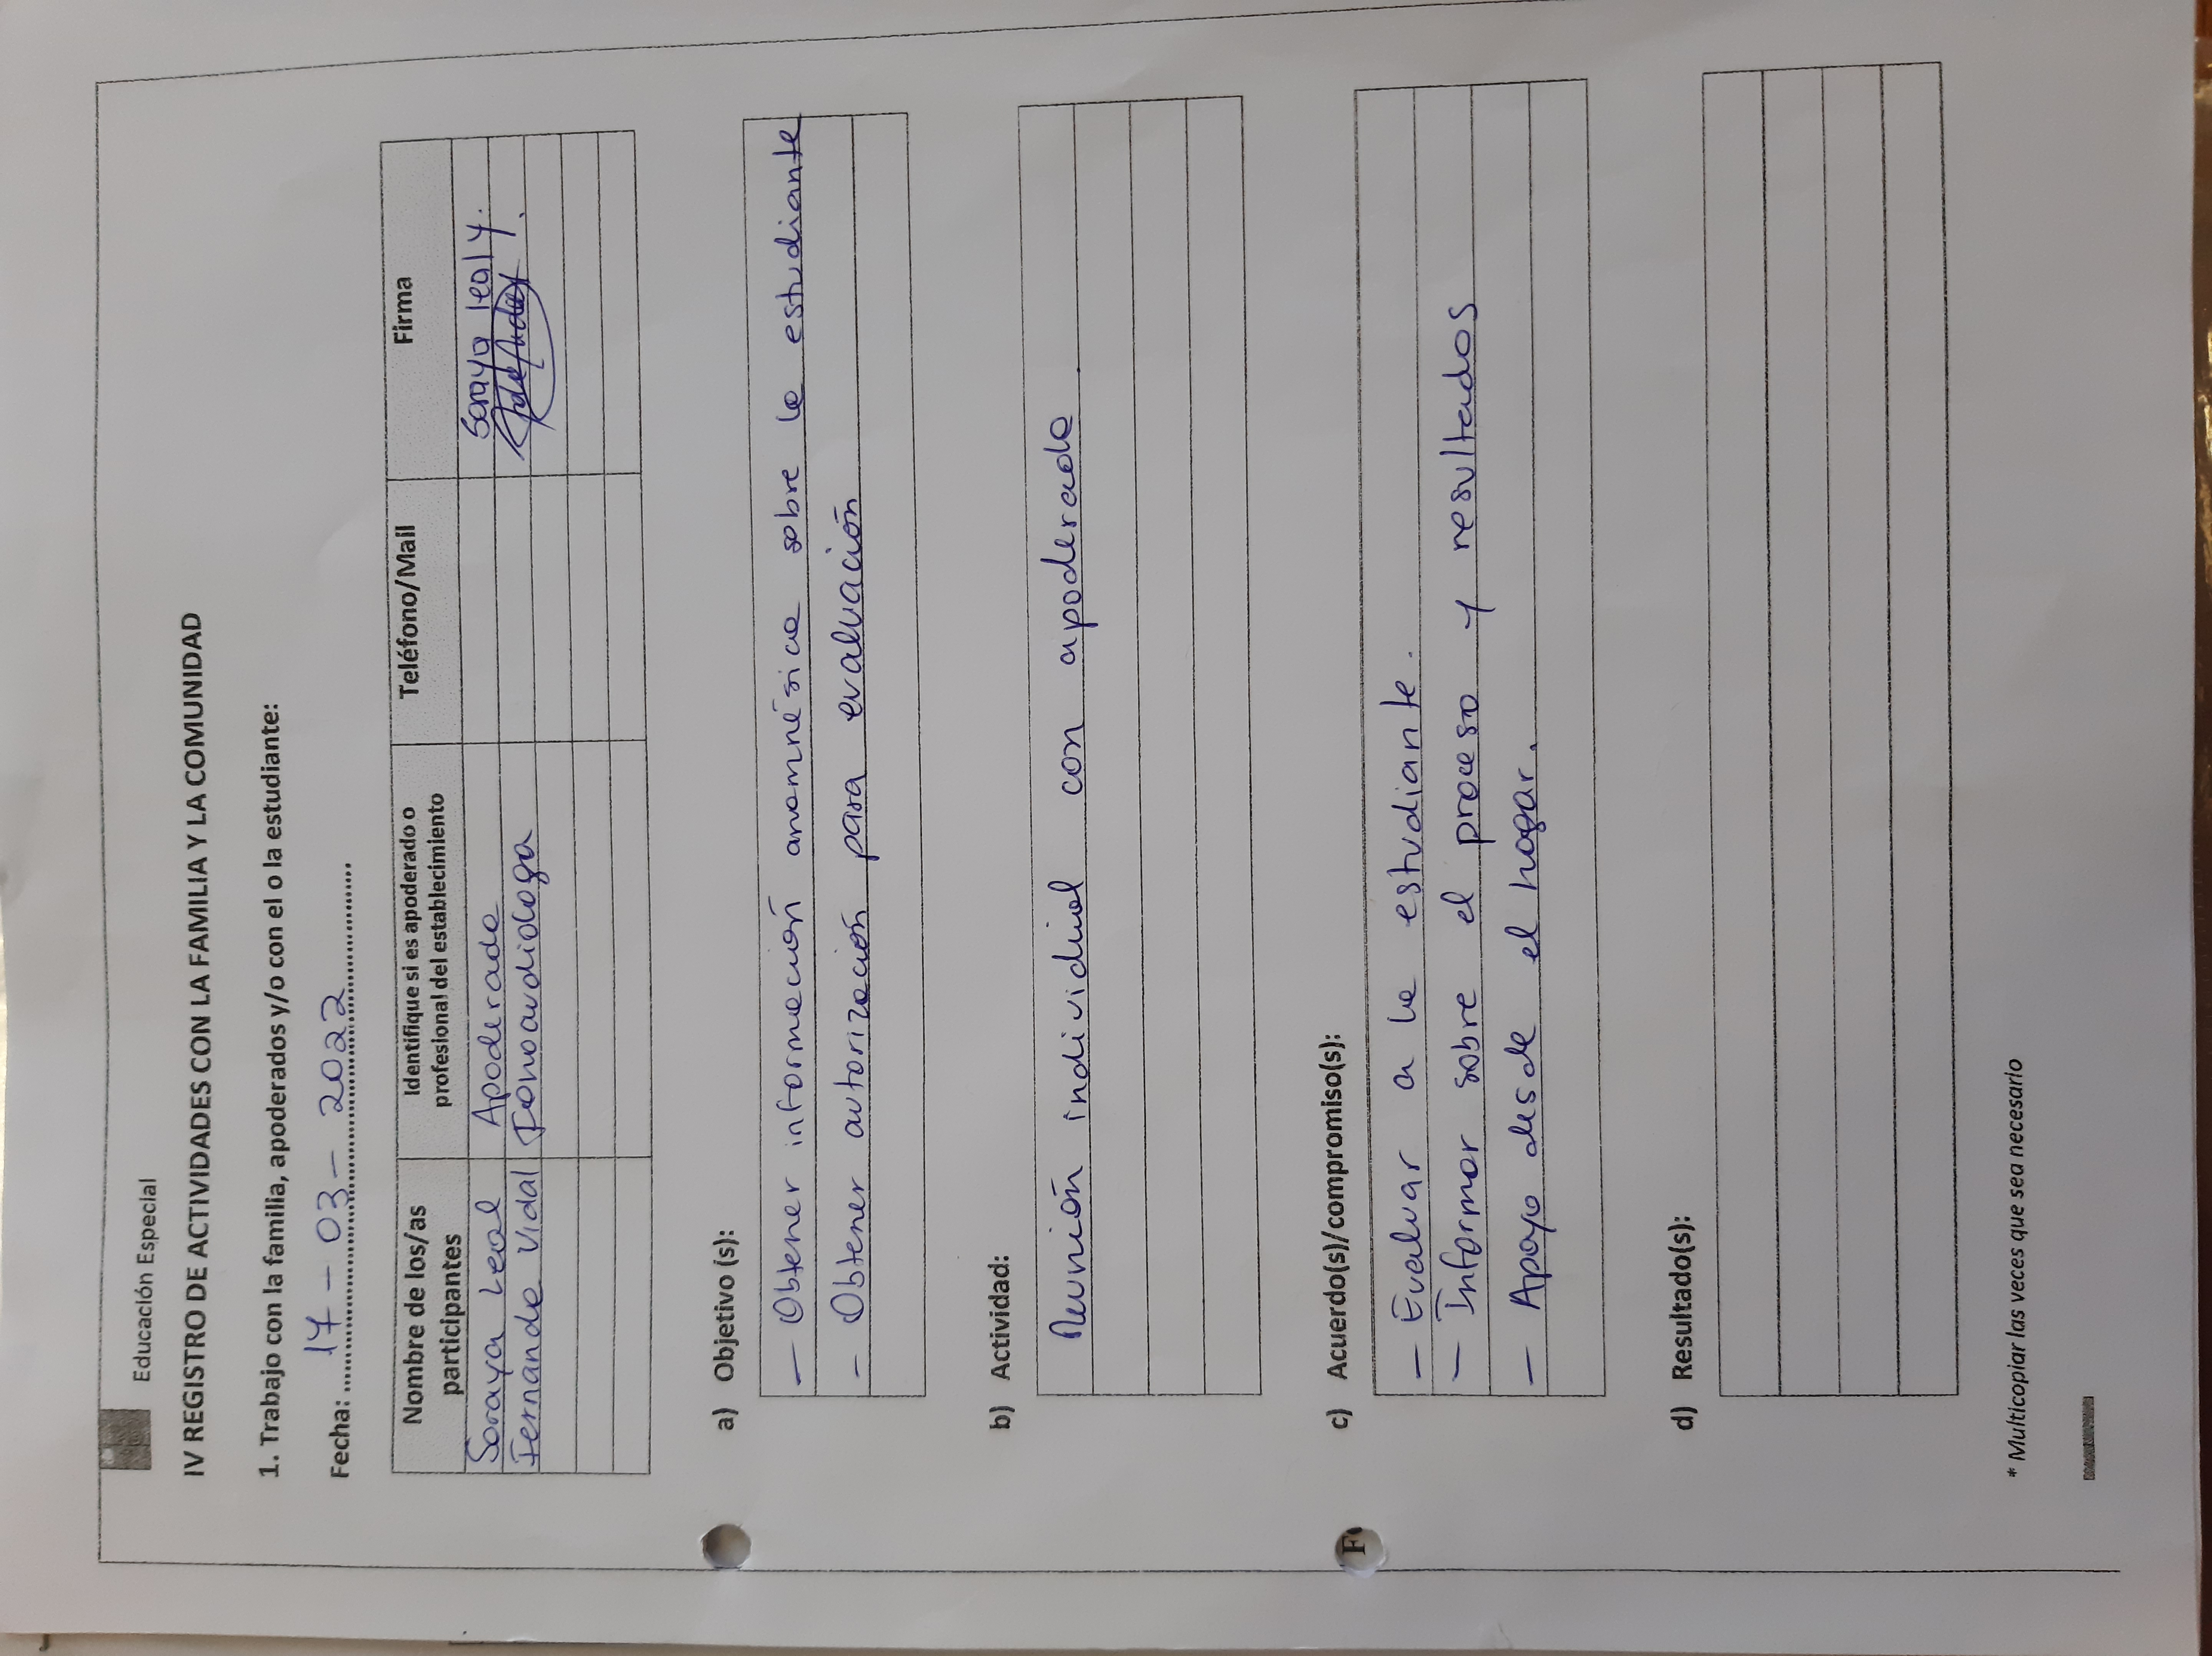 Educación Especial
IV REGISTRO DE ACTIVIDADES CON LA FAMILIA Y LA COMUNIDAD
1. Trabajo con la familia, apoderados y/o con el o la estudiante:
Fecha: 17 - 03 - 2022
Nombre de los/as participantes Identifique si es apoderado o profesional del establecimiento Teléfono/Mail Firma
Soraya Leal Apoderada Soraya leal y.
Fernanda Vidal Fonoaudiologa
a) Objetivo (s):
- Obtener información anamnésica sobre la estudiante
- Obtener autorización para evaluación
b) Actividad:
Reunión individual con apoderada
c) Acuerdo(s)/compromiso(s):
- Evaluar a la estudiante.
- Informar sobre el proceso y resultados
- Apoyo desde el hogar.
d) Resultado(s):
* Multicopiar las veces que sea necesario